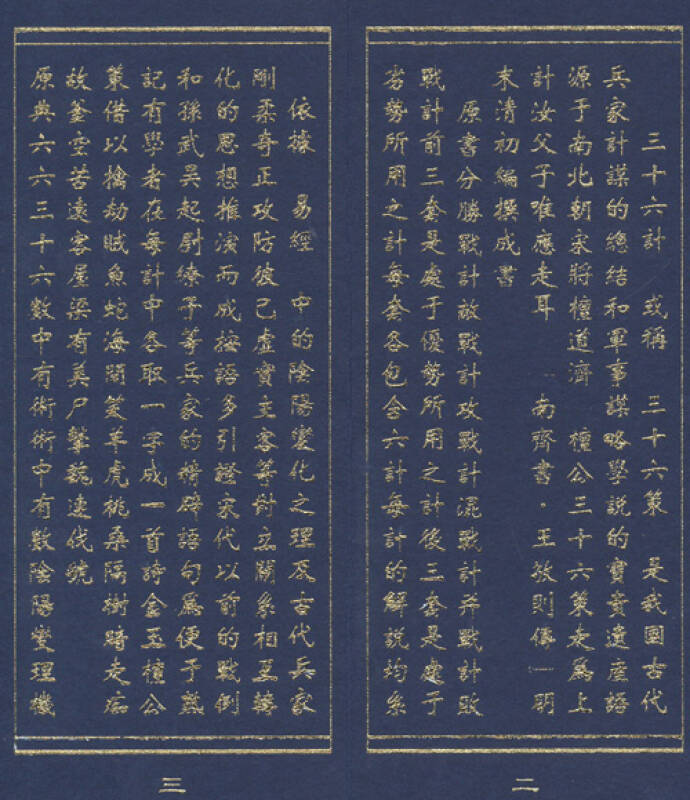 三十六計 或稱 三十六策 是我國古代
兵家計謀的總結和軍事謀略學説的寶貴遺産語
源于南北朝宋將檀道濟 檀公三十六策走爲上
計汝父子唯應走耳 南齊書·王敬則傳 一明
末清初編撰成書
原書分勝戰計敵戰計攻戰計混戰計并戰計敗
戰計前三套是處于優勢所用之計後三套是處于
劣勢所用之計每套各包含六計每計的解説均系
二
依據 易經 中的陰陽變化之理及古代兵家
剛柔奇正攻防彼己虛實主客等對立關系相互轉
化的思想推演而成按語多引證宋代以前的戰例
和孫武吳起尉繚子等兵家的精辟語句爲便于熟
記有學者在每計中各取一字成一首詩金玉檀公
策借以擒劫賊魚蛇海間笑羊虎桃桑隔樹暗走痴
故釜空苦遠客屋梁有美尸擊魏連伐虢
原典六六三十六數中有術術中有數陰陽燮理機
三